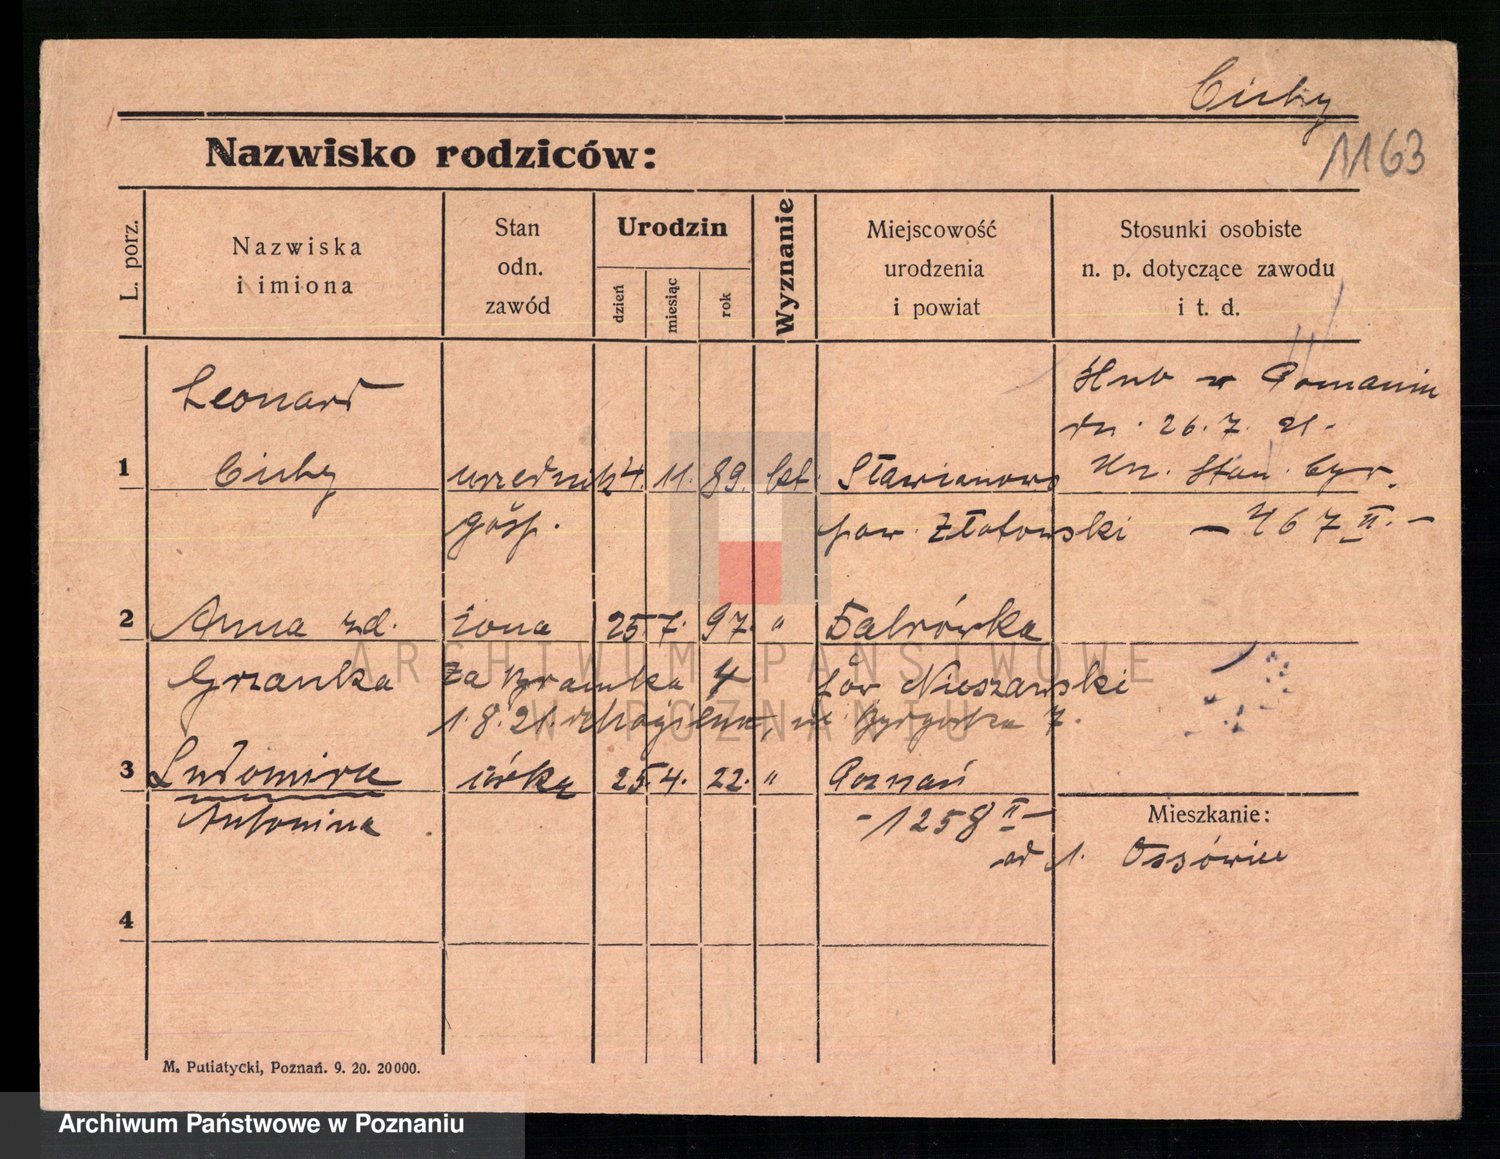 Cichy
1163
Nazwisko rodziców:
L. porz.
Nazwiska
i imiona
Stan
odn.
zawód
Urodzin
dzień
miesiąc
rok
Wyznanie
Miejscowość
urodzenia
i powiat
Stosunki osobiste
n. p. dotyczące zawodu
i t. d.
1
Leonard
Cichy
urzednik
gosp.
4. 11. 89. kat.
Sławianowo
pow. Złotowski
ślub w Poznaniu
dn. 26. 7. 21.
Urz. Stan. Cyw.
– 467 II. –
2
Anna zd.
Grzanka
żona
25 7. 97. "
Dabrówka
pow Nieszawski
1. 8. 21.
Bydgoska 7.
3
Ludomira
Antonina
córka
25 4. 22. "
Poznań
- 1258 II -
Mieszkanie:
od 1. Ossówiec
4
M. Putiatycki, Poznań. 9. 20. 20000.
ARCHIWUM PAŃSTWOWE
W POZNANIU
Archiwum Państwowe w Poznaniu